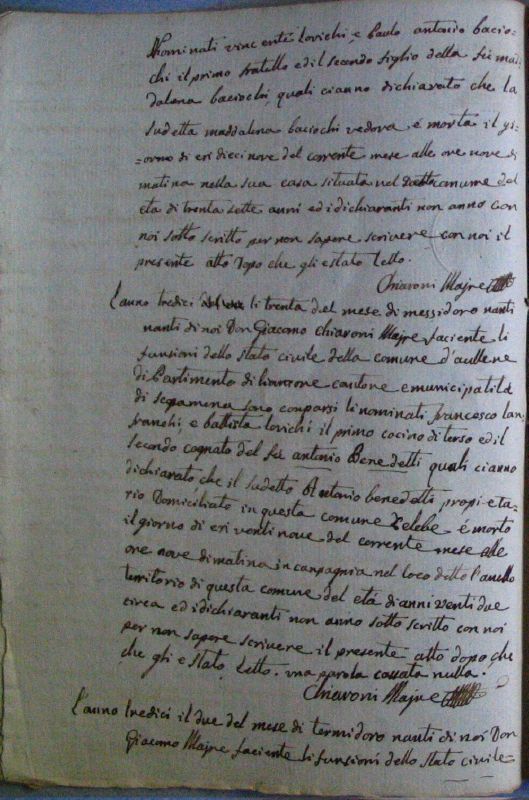 Nominati vincente lovichi, e Paulo antonio bacio=
chi il primo fratello ed il secondo figlio della fu ma
dalena baciochi, quali cianno dichiarato che la
sudetta maddalena baciochi vedova, é morta il gi
=orno di eri dieci nove del corrente mese alle ore nove di
matina nella sua casa situata nel comune del
eta di trenta sette anni ed i dichiaranti non anno con
noi sotto scritto per non sapere scrivere con noi il
presente atto dopo che gli e stato letto.
Chiavoni Majre
l'anno tredici li trenta del mese di messidoro nanti
nanti di noi Don Giacomo Chiaroni Majre faciente li
funsioni dello stato civile della comune d'aullene
di Partimento di liamone cantone e municipalità
di scopamena sono comparsi li nominati francesco lan
franchi, e battista lovichi il primo cocino di terso ed il
secondo cognato del fu antonio Benedetti quali cianno
dichiarato che il sudetto Antonio benedetti propieta=
rio Domiciliato in questa comune é morto
il giorno di eri venti nove del corrente mese alle
ore nove di matina in canpagnia nel loco detto
territorio di questa comune del età di anni venti due
circa ed i dichiaranti non anno sotto scritto con noi
per non sapere scrivere il presente atto dopo che
che gli e stato letto. una parola cassata nulla.
Chiavoni Majre
l'anno tredici il due del mese di termidoro nanti di noi Don
Giacomo Majre faciente li funsioni dello stato civile